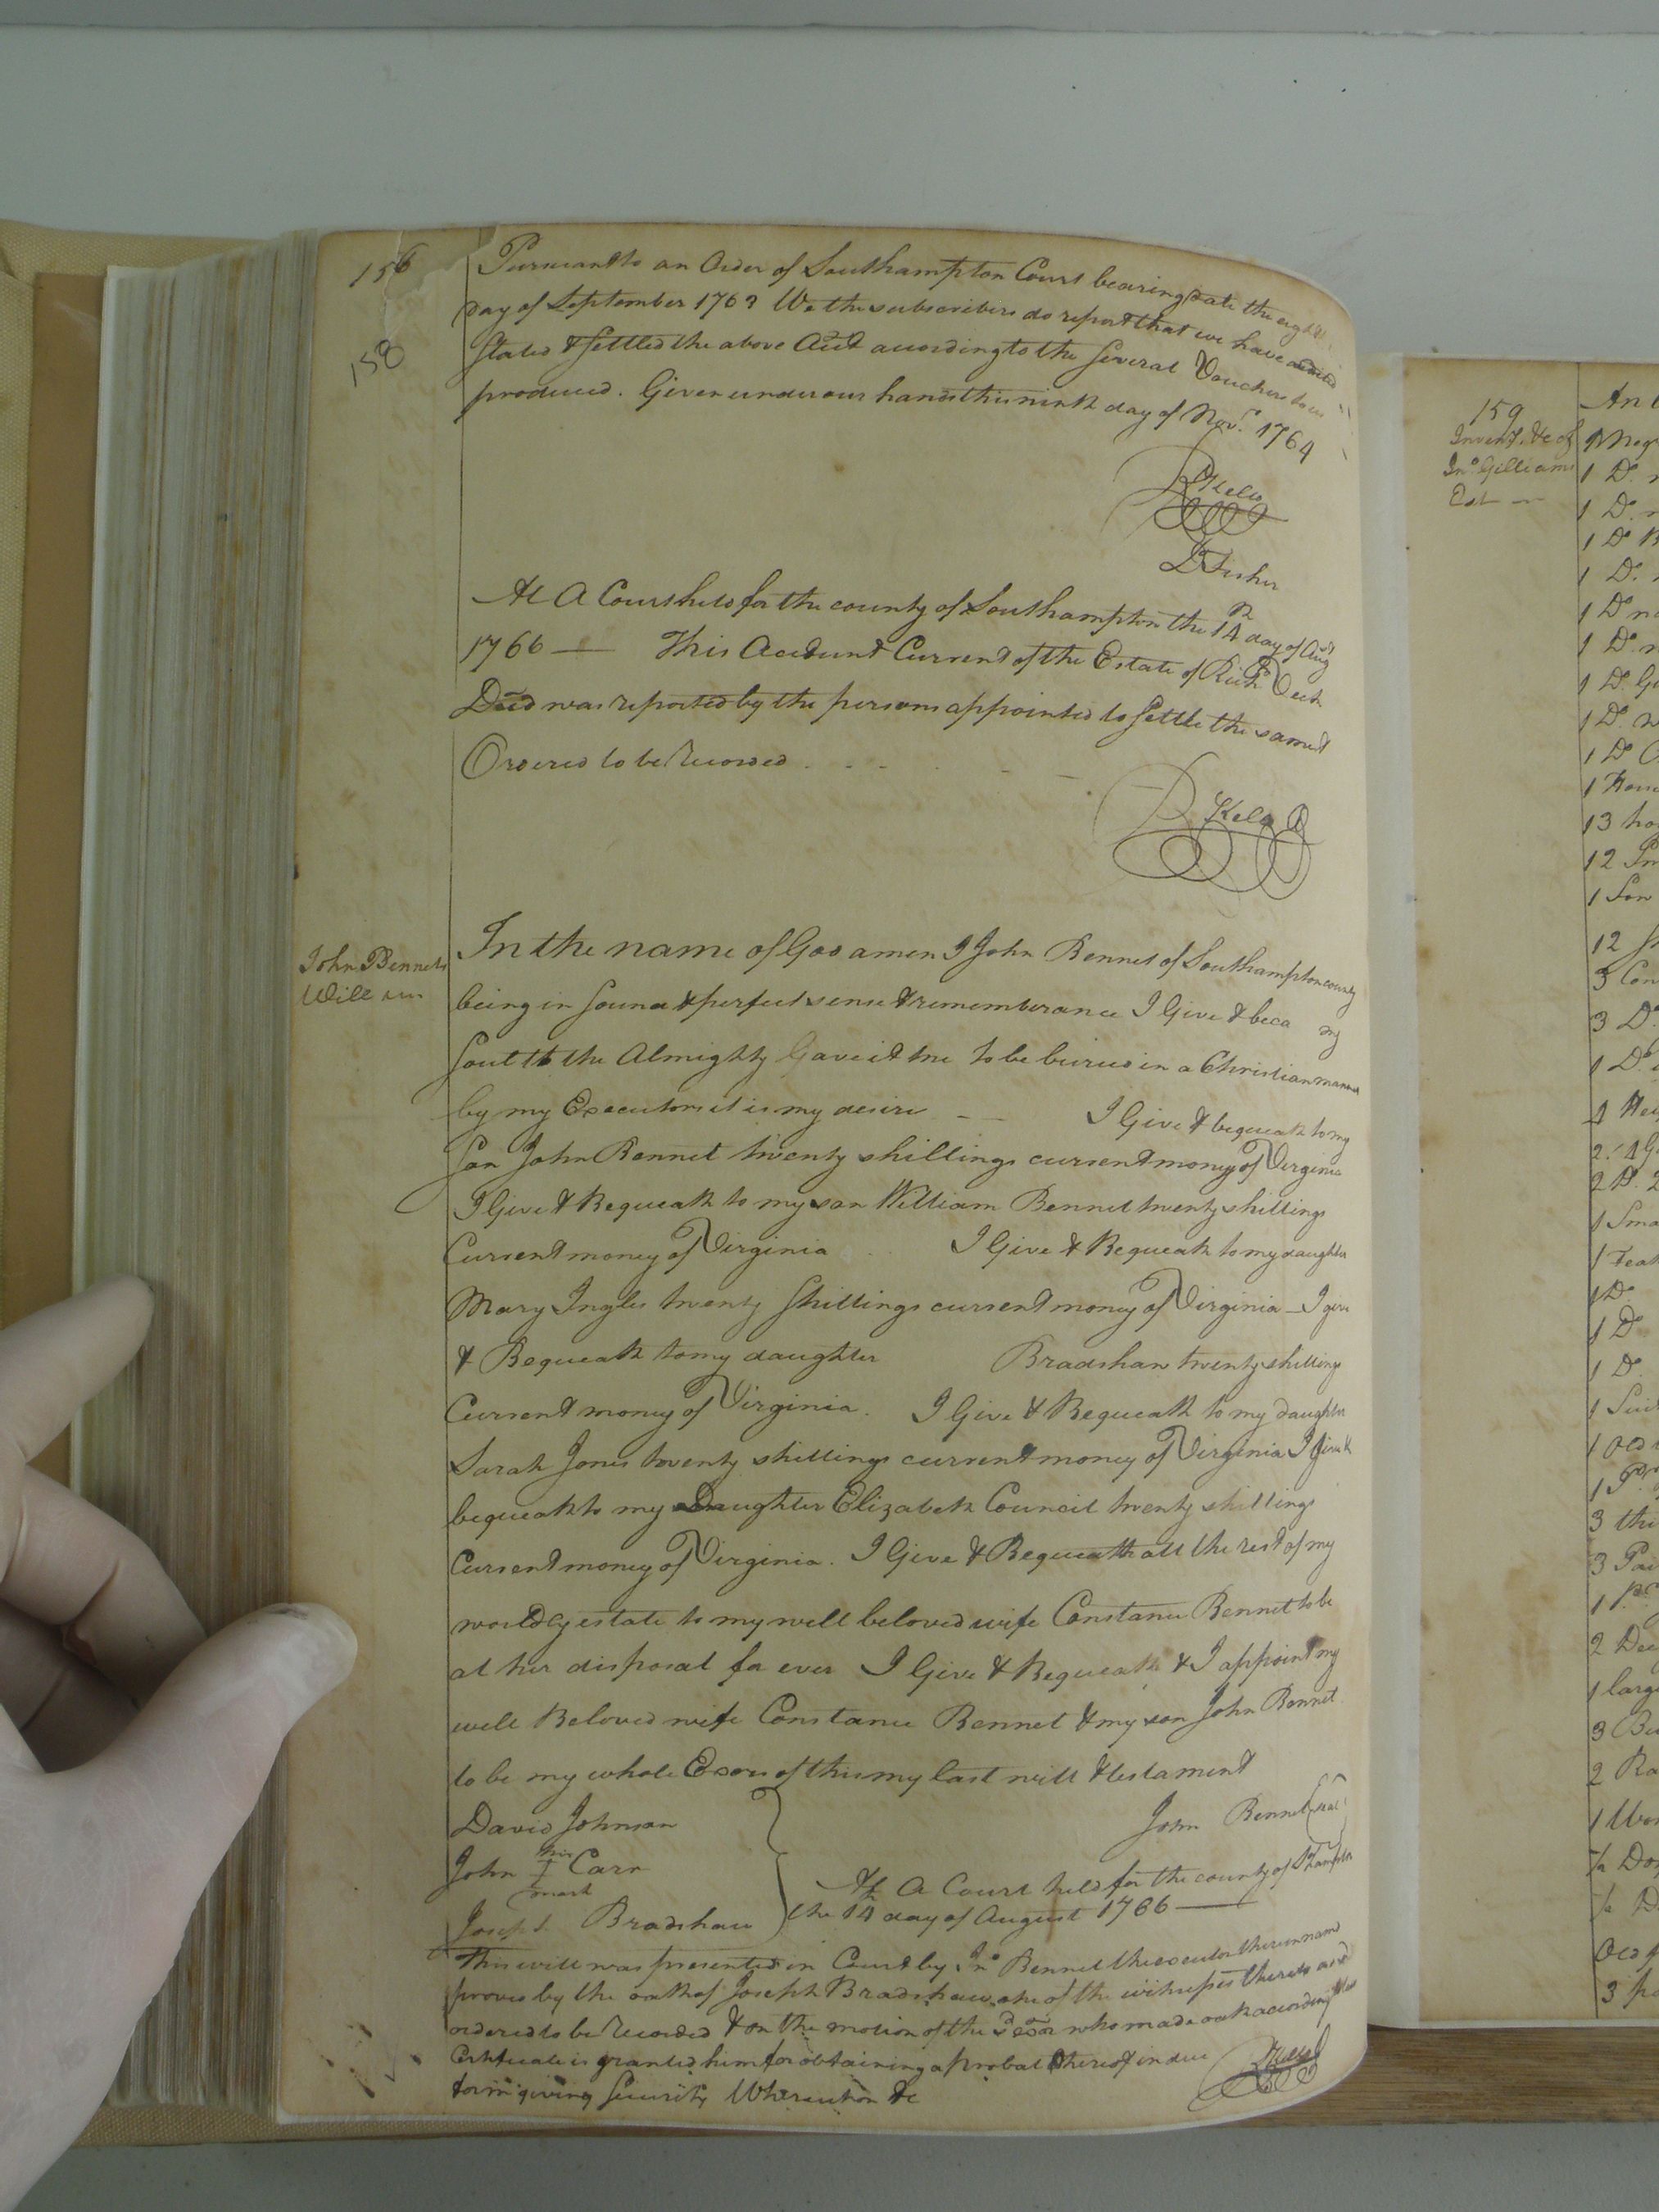 156
158
Pursuant to an Order of Southampton Court bearing date the eighth
day of September 1763 We the subscribers do report that we have audited
stated & settled the above Acct according to the several Vouchers to us
produced. Given under our hands this ninth day of Novr. 1764
R Kello
D Fisher
At A Court held for the county of Southampton the 14th day of Augt
1766 — This Account Current of the Estate of Richd
Decd was reported by the persons appointed to settle the same &
Ordered to be Recorded
R Kello
John Bennets
Will
In the name of God amen I John Bennet of Southampton county
being in sound & perfect sense & rememberance I Give & beca my
soul to the Almighty Gave it me to be buried in a Christian manner
by my Executors it is my desire — — I Give & bequeath to my
son John Bennet twenty shillings current money of Virginia
I Give & Bequeath to my son William Bennet twenty shillings
Current money of Virginia I Give & Bequeath to my daughter
Mary Ingles twenty shillings current money of Virginia — I give
& Bequeath to my daughter Bradshaw twenty shillings
Current money of Virginia. I Give & Bequeath to my daughter
Sarah Jones twenty shillings current money of Virginia I Give &
bequeath to my Daughter Elizabeth Council twenty shillings
Current money of Virginia. I Give & Bequeath all the rest of my
worldly estate to my well beloved wife Constance Bennet to be
at her disposal for ever I Give & Bequeath & I appoint my
well Beloved wife Constance Bennet & my son John Bennet
to be my whole Exors of this my last will & testament
David Johnson
John Bennet (seal)
John his I mark Carr
Joseph Bradshaw
At A Court held for the county of Sthampton
the 14th day of August 1766 —
This will was presented in Court by Jno Bennet the executor therein named
proved by the oath of Joseph Bradshaw one of the witnesses thereto and
ordered to be Recorded & on the motion of the sd Exor who made oath according to law
Certificate is granted him for obtaining a probat thereof in due
form giving Security Whereupon &c
159
Invent. &c of
Jno Gilliams
Est
1 Do
1 Do
1 Do
1 Do
1 Do
1 Do
1 Do
1 Do
1 Do
13 ho
12
12
3
3 Do
1 Do
1 Sma
1 Do
1 Do
1 Do
1 Old
3
3 Pai
1 larg
3
2
Old
3